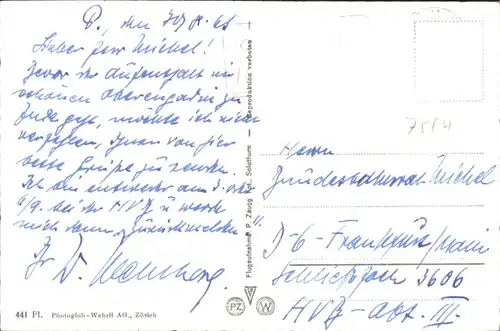 P., den 30/8.65
Lieber Herr Michel!
Bevor der Aufenthalt im
schönen Oberengadin zu
Ende geht, möchte ich nicht
Ihnen von hier
beste Grüße zu senden.
Ich bin entweder am
6/9. bei der HVB u werde
mich dann zurückmelden
Ihr
441 Fl. Photoglob-Wehrli AG., Zürich
Flugaufnahme P. Zaugg Solothurn — Reproduktion verboten
PZ W
7564
Herrn
Michel
D-6-Frankfurt/Main
Schließfach 3606
HVB-Abt. III.